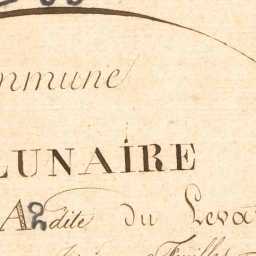 mmune
LUNAIRE
A 2 dite du Leva
Feuilles